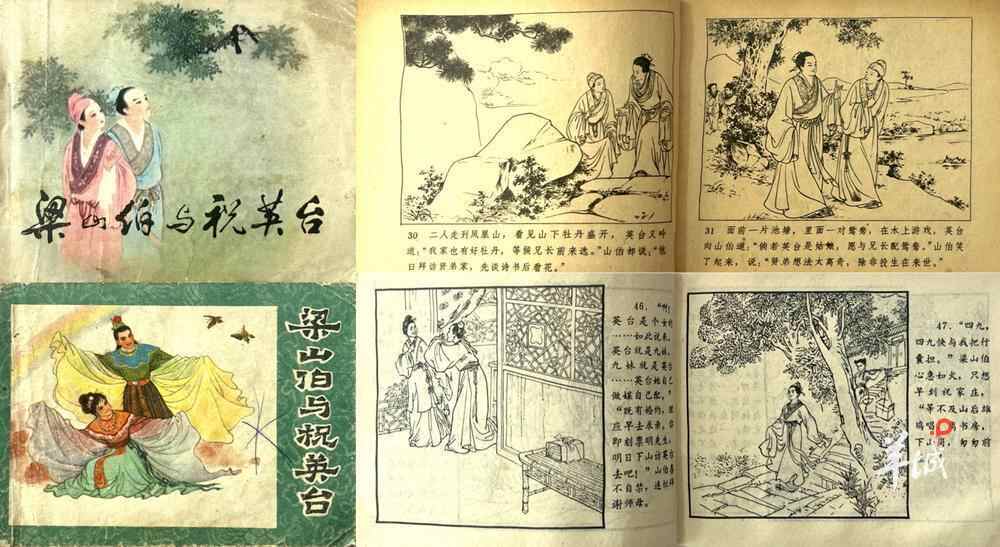 梁山伯与祝英台
30 二人走到凤凰山，看见山下牡丹盛开，英台又吟
道：“我家也有好牡丹，等候兄长前来选。”山伯却说：“他
日拜访贤弟家，先谈诗书后看花。”
31 面前一片池塘，里面一对鸳鸯，在水上游戏，英台
向山伯道：“倘若英台是姑娘，愿与兄长配鸳鸯。”山伯笑
了起来，说：“贤弟想法太离奇，除非投生在来世。”
梁山伯与祝英台
46. “啊！
英台是个女的
……如此说来，
英台就是九妹，
九妹就是英台
……英台她自己
做媒自己配。”
“既有婚约，
应早去求亲，
即刻禀明先生，
明日下山访英台
去吧！”山伯喜
不自禁，连忙拜
谢师母。
47. “四九，
四九快与我把行
囊担。”梁山伯
心急如火，只想
早到祝家庄，
“等不及山后雄
鸡唱，书房，
下山岗，匆匆前
羊城